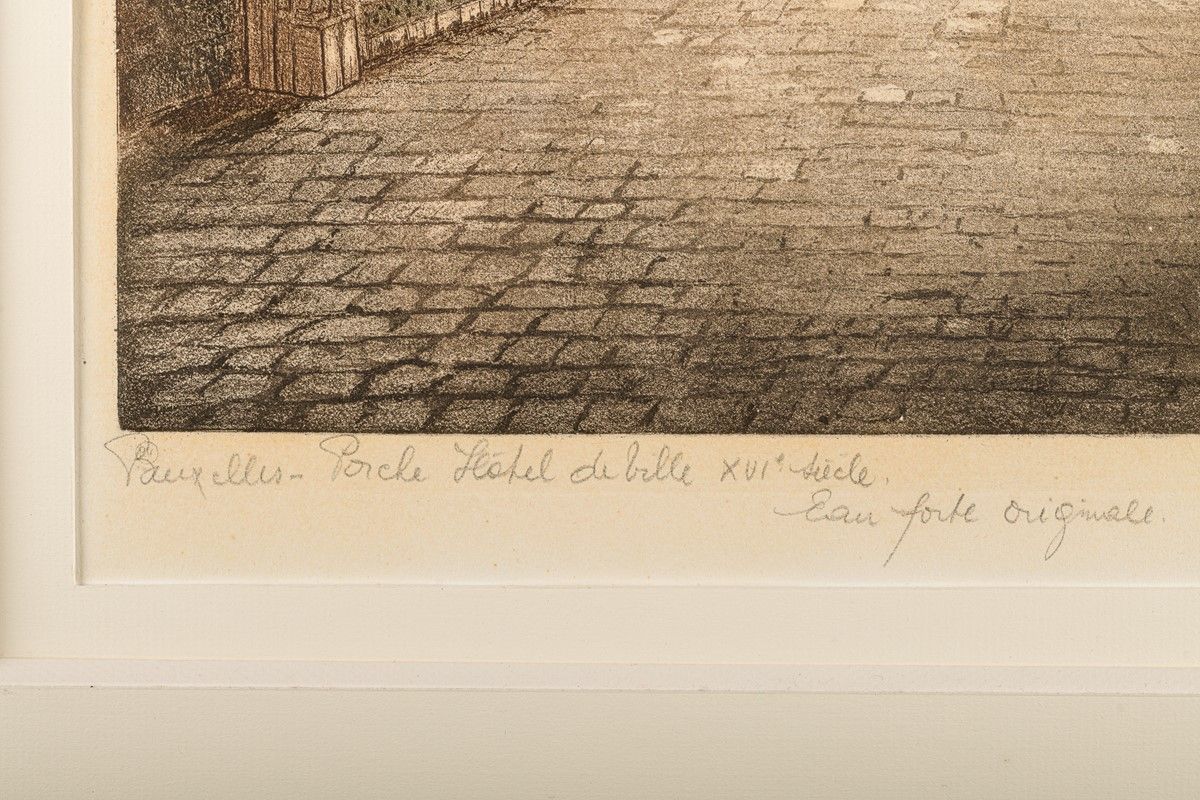 Bruxelles - Porche Hôtel de ville XVIe siècle.
Eau forte originale.